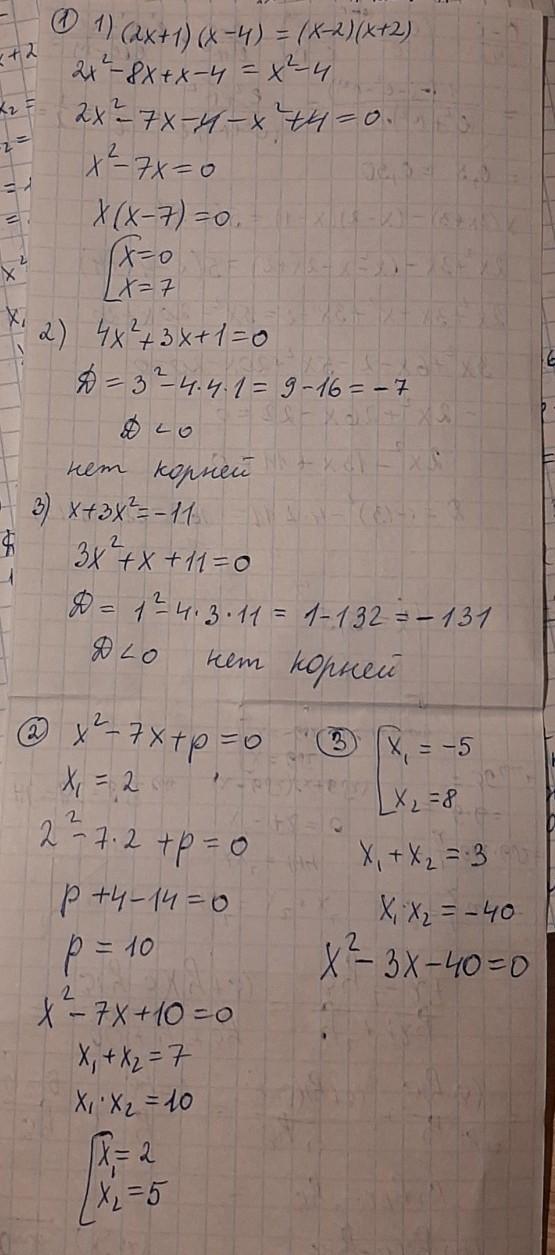 ① 1) (2x+1)(x-4) = (x-2)(x+2)
2x²-8x+x-4 = x²-4
2x²-7x-4-x²+4=0
x²-7x=0
x(x-7)=0
[x=0
x=7
2) 4x²+3x+1=0
D = 3²-4·4·1 = 9-16 = -7
D<0
нет корней
3) x+3x²=-11
3x²+x+11=0
D = 1²-4·3·11 = 1-132 = -131
D<0 нет корней
② x²-7x+p=0
x₁ = 2
2²-7·2+p=0
p+4-14=0
p=10
x²-7x+10=0
x₁+x₂=7
x₁·x₂=10
[x₁=2
x₂=5
③ [x₁=-5
x₂=8
x₁+x₂=3
x₁·x₂=-40
x²-3x-40=0